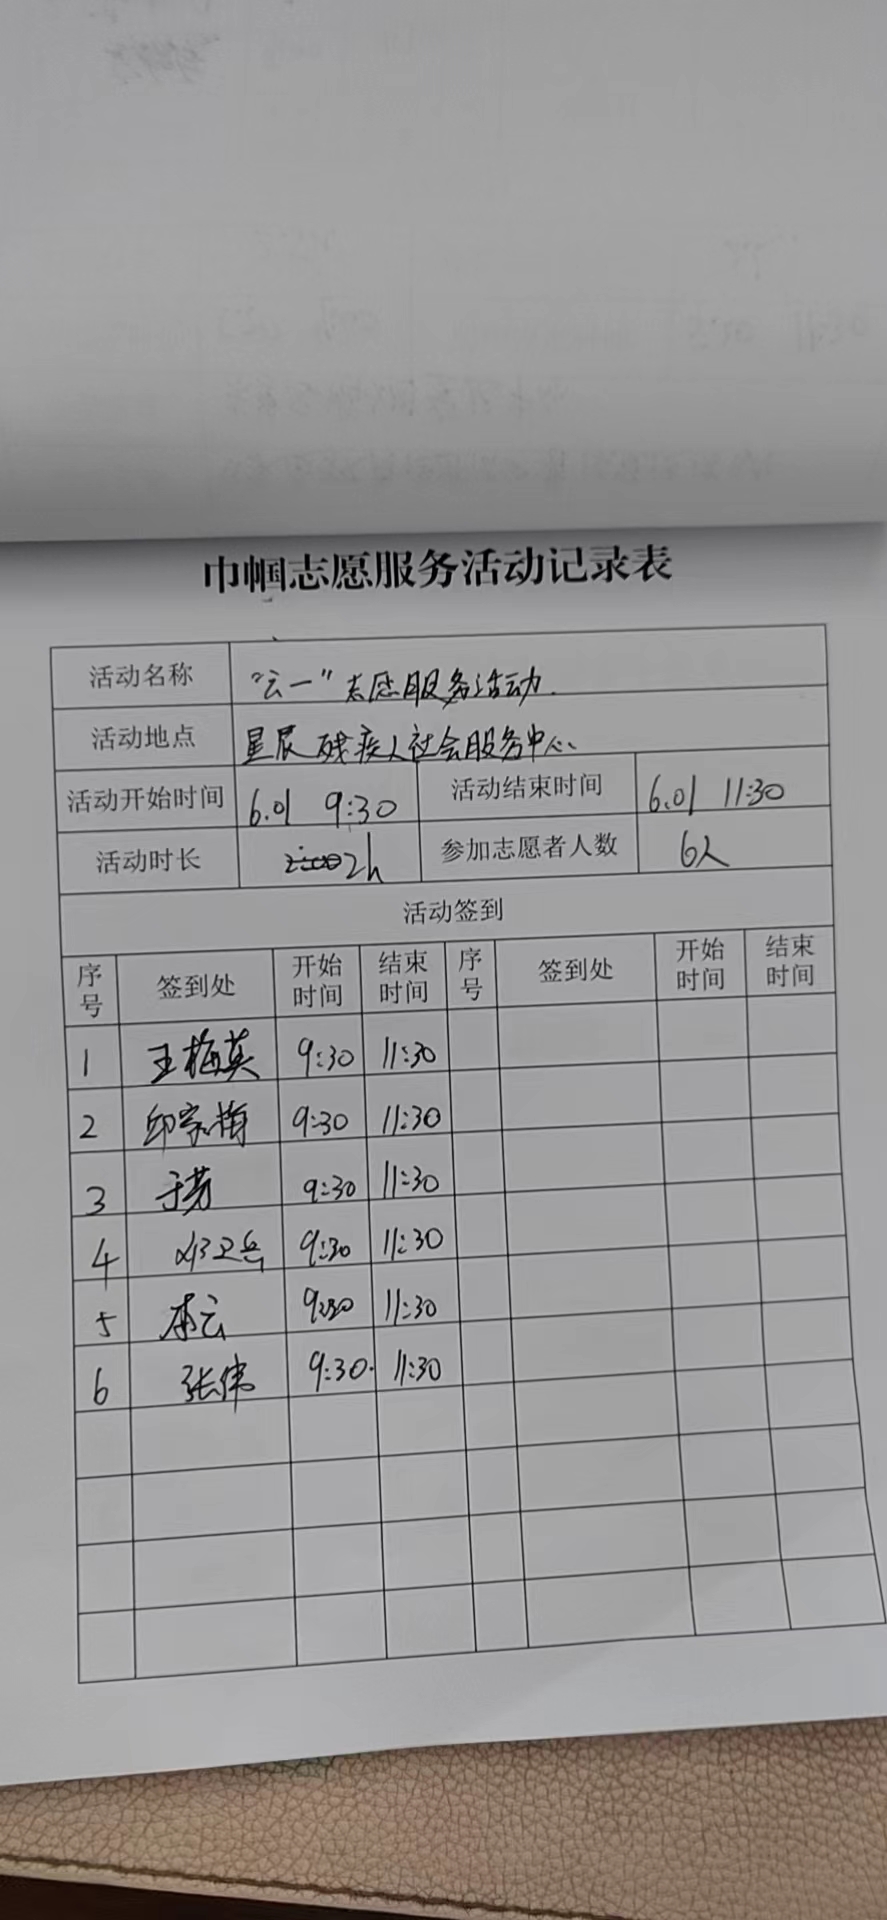 巾帼志愿服务活动记录表
活动名称 “云一”志愿服务活动.
活动地点 星辰残疾人社会服务中心
活动开始时间 6.01 9:30 活动结束时间 6.01 11:30
活动时长 2h 参加志愿者人数 6人
活动签到
序号 签到处 开始时间 结束时间 序号 签到处 开始时间 结束时间
1 王梅英 9:30 11:30
2 邱家梅 9:30 11:30
3 于芳 9:30 11:30
4 卫兵 9:30 11:30
5 李云 9:30 11:30
6 张伟 9:30 11:30